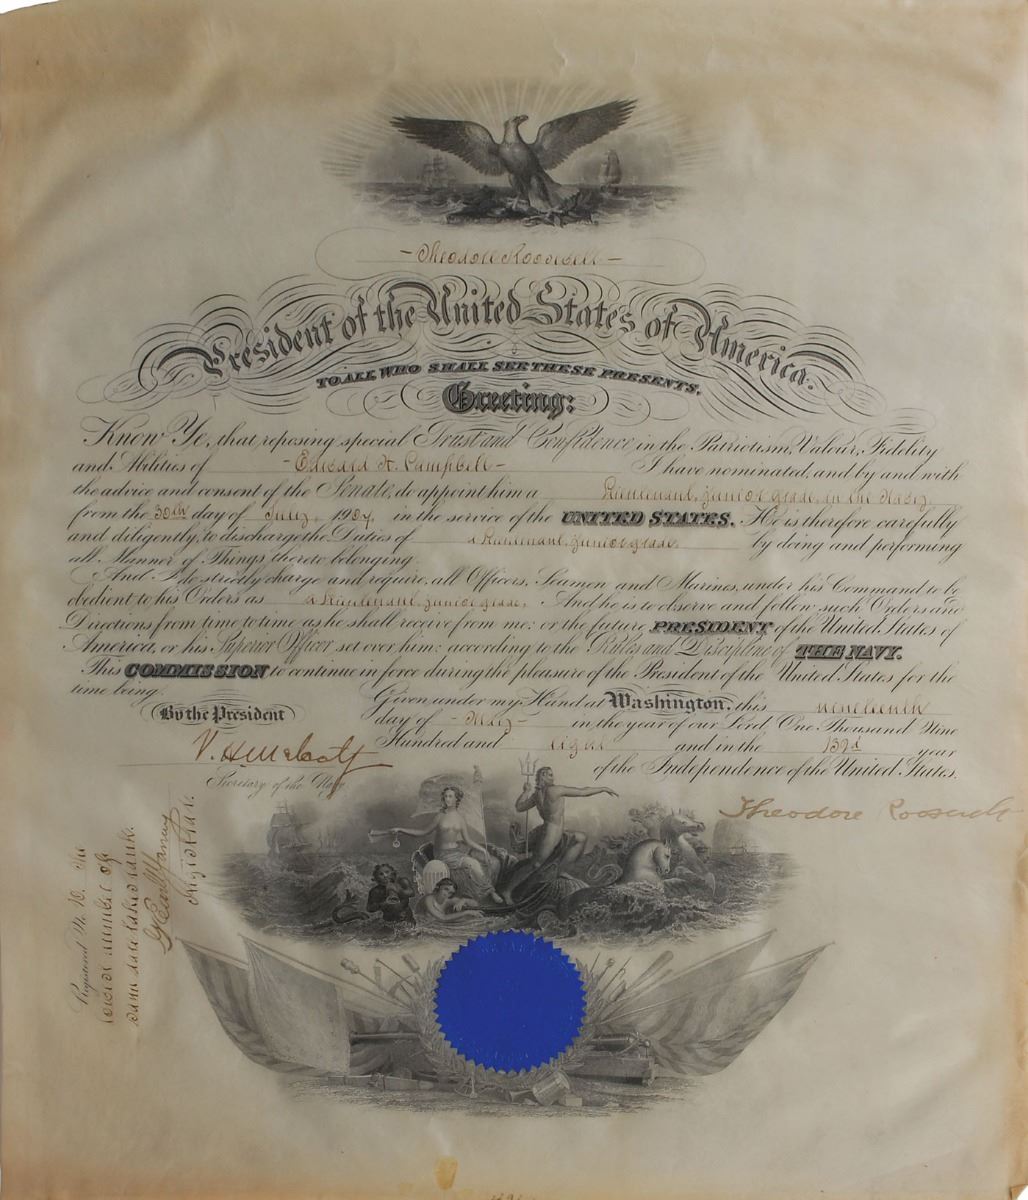 - Theodore Roosevelt -
President of the United States of America.
TO ALL WHO SHALL SEE THESE PRESENTS,
Greeting:
Know Ye, that reposing special Trust and Confidence in the Patriotism, Valour, Fidelity
and Abilities of - Edward H. Campbell - I have nominated, and by and with
the advice and consent of the Senate, do appoint him a Lieutenant, junior grade, in the Navy,
from the 30th day of July, 1907, in the service of the UNITED STATES. He is therefore carefully
and diligently to discharge the Duties of a Lieutenant, junior grade, by doing and performing
all Manner of Things thereto belonging.
And I do strictly charge and require all Officers, Seamen and Marines, under his Command to be
obedient to his Orders as a Lieutenant, junior grade. And he is to observe and follow such Orders and
Directions from time to time as he shall receive from me: or the future PRESIDENT of the United States of
America, or his Superior Officer set over him: according to the Rules and Discipline of THE NAVY.
This COMMISSION to continue in force during the pleasure of the President of the United States for the
time being.
Given under my Hand at Washington, this nineteenth
day of - May - in the year of our Lord One Thousand Nine
Hundred and eight and in the 132d year
of the Independence of the United States.
By the President
V. H. Metcalf
Secretary of the Navy
Theodore Roosevelt
Registered No. 10. The
lowest number of
same date takes rank.
Registrar.